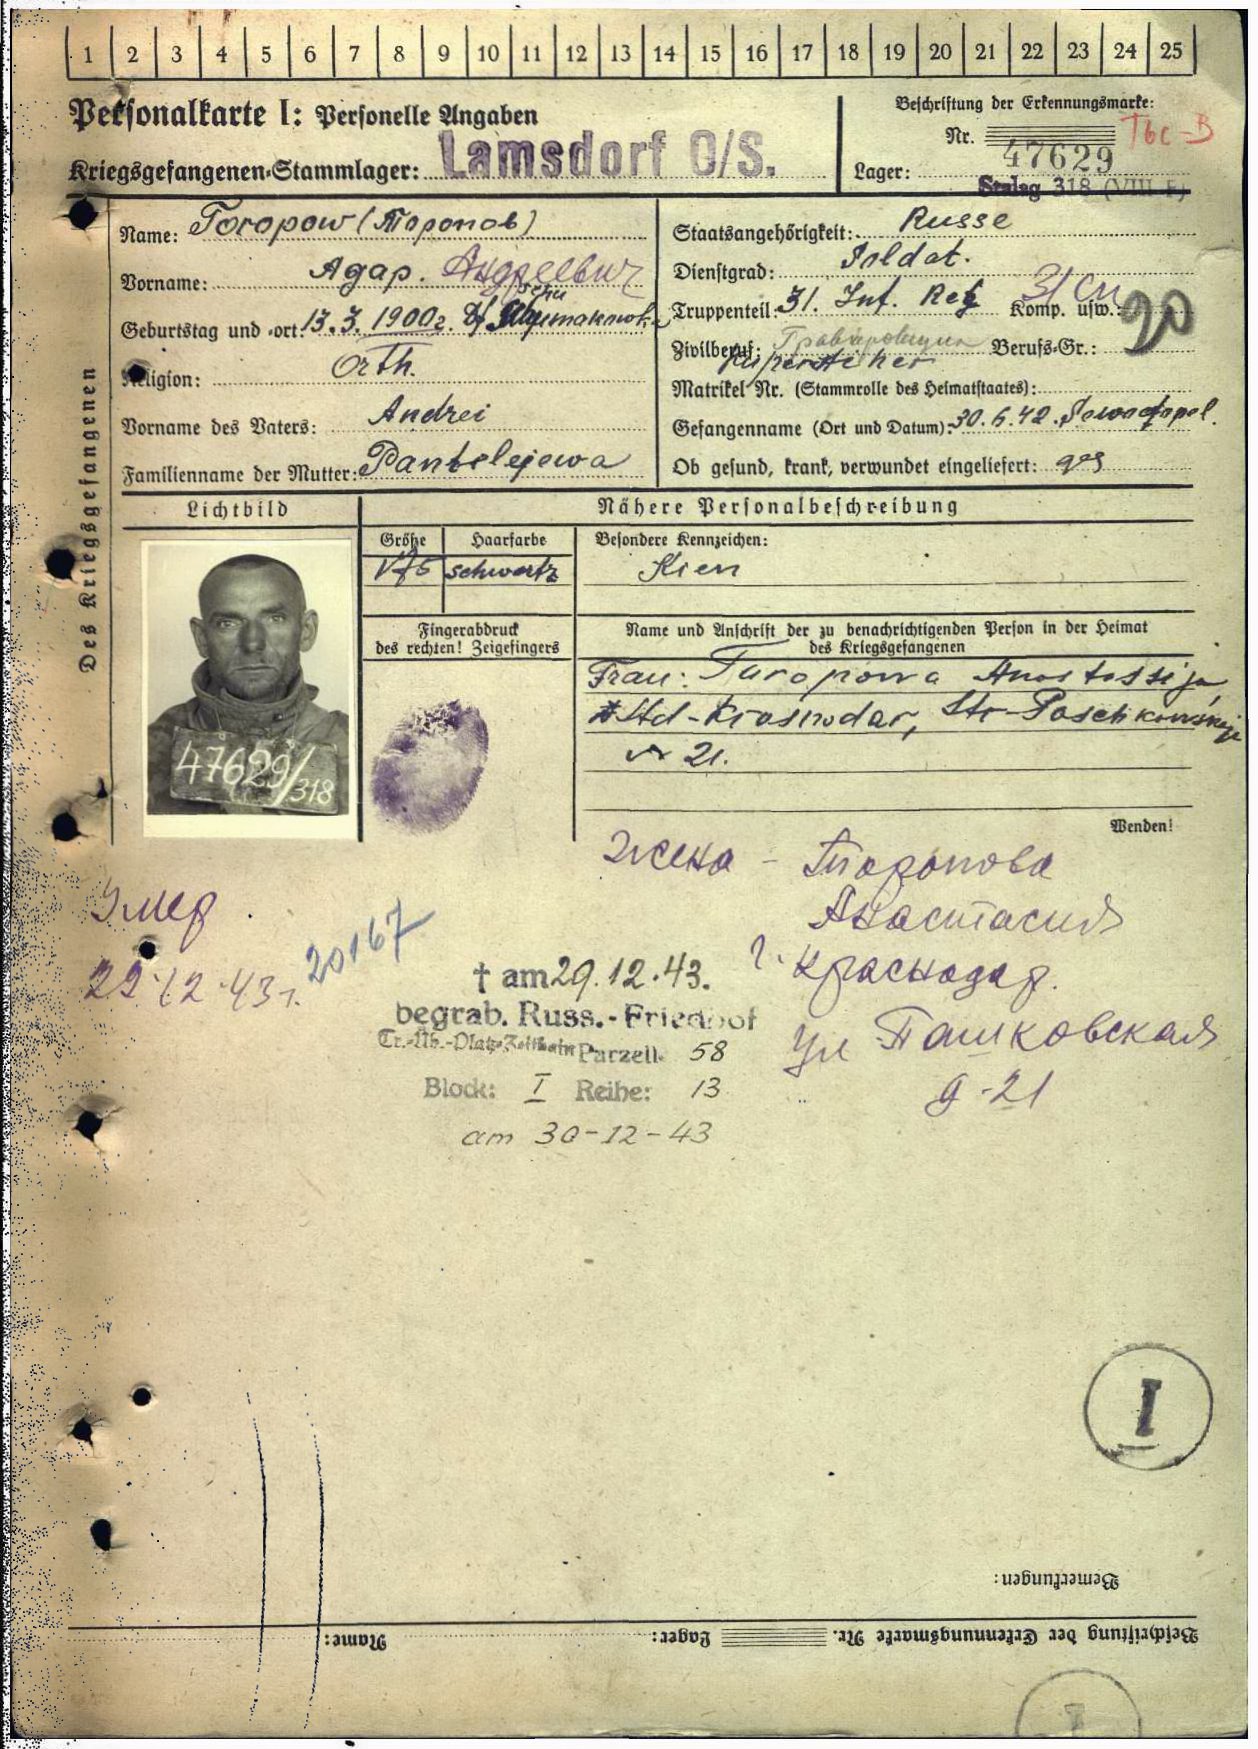 1 2 3 4 5 6 7 8 9 10 11 12 13 14 15 16 17 18 19 20 21 22 23 24 25
Personalkarte I: Personelle Angaben
Kriegsgefangenen-Stammlager: Lamsdorf O/S.
Beschriftung der Erkennungsmarke:
Nr. 47629 Tbc-B
Lager: Stalag 318 (VIII F)
Des Kriegsgefangenen
Name: Toropow (Торопов)
Vorname: Agap. Андреевич
Geburtstag und -ort: 13.3.1900г.
Religion: Orth.
Vorname des Vaters: Andrei
Familienname der Mutter: Pantelejewa
Staatsangehörigkeit: Russe
Dienstgrad: Soldat.
Truppenteil: 31. Inf. Reg Komp. usw.: 31 сп
20
Zivilberuf: Berufs-Gr.:
Matrikel Nr. (Stammrolle des Heimatstaates):
Gefangenname (Ort und Datum): 30.6.42. Sewastopol.
Ob gesund, krank, verwundet eingeliefert: ges
Lichtbild
Nähere Personalbeschreibung
Größe Haarfarbe Besondere Kennzeichen:
176 schwartz
47629/318
Fingerabdruck
des rechten! Zeigefingers
Name und Anschrift der zu benachrichtigenden Person in der Heimat
des Kriegsgefangenen
Frau: Turopowa Anastassija
Std-Krasnodar, Str-Paschkowskaja
N 21.
Wenden!
жена - Торопова
Анастасия
г. Краснодар.
ул Пашковская
д-21
Умер
29.12.43г.
20167
† am 29.12.43.
begrab. Russ.-Friedhof
Tr.-Üb.-Platz-Zeithain Parzell. 58
Block: I Reihe: 13
am 30-12-43
I
Bemerkungen:
Beschriftung der Erkennungsmarke Nr. Lager: Name:
I